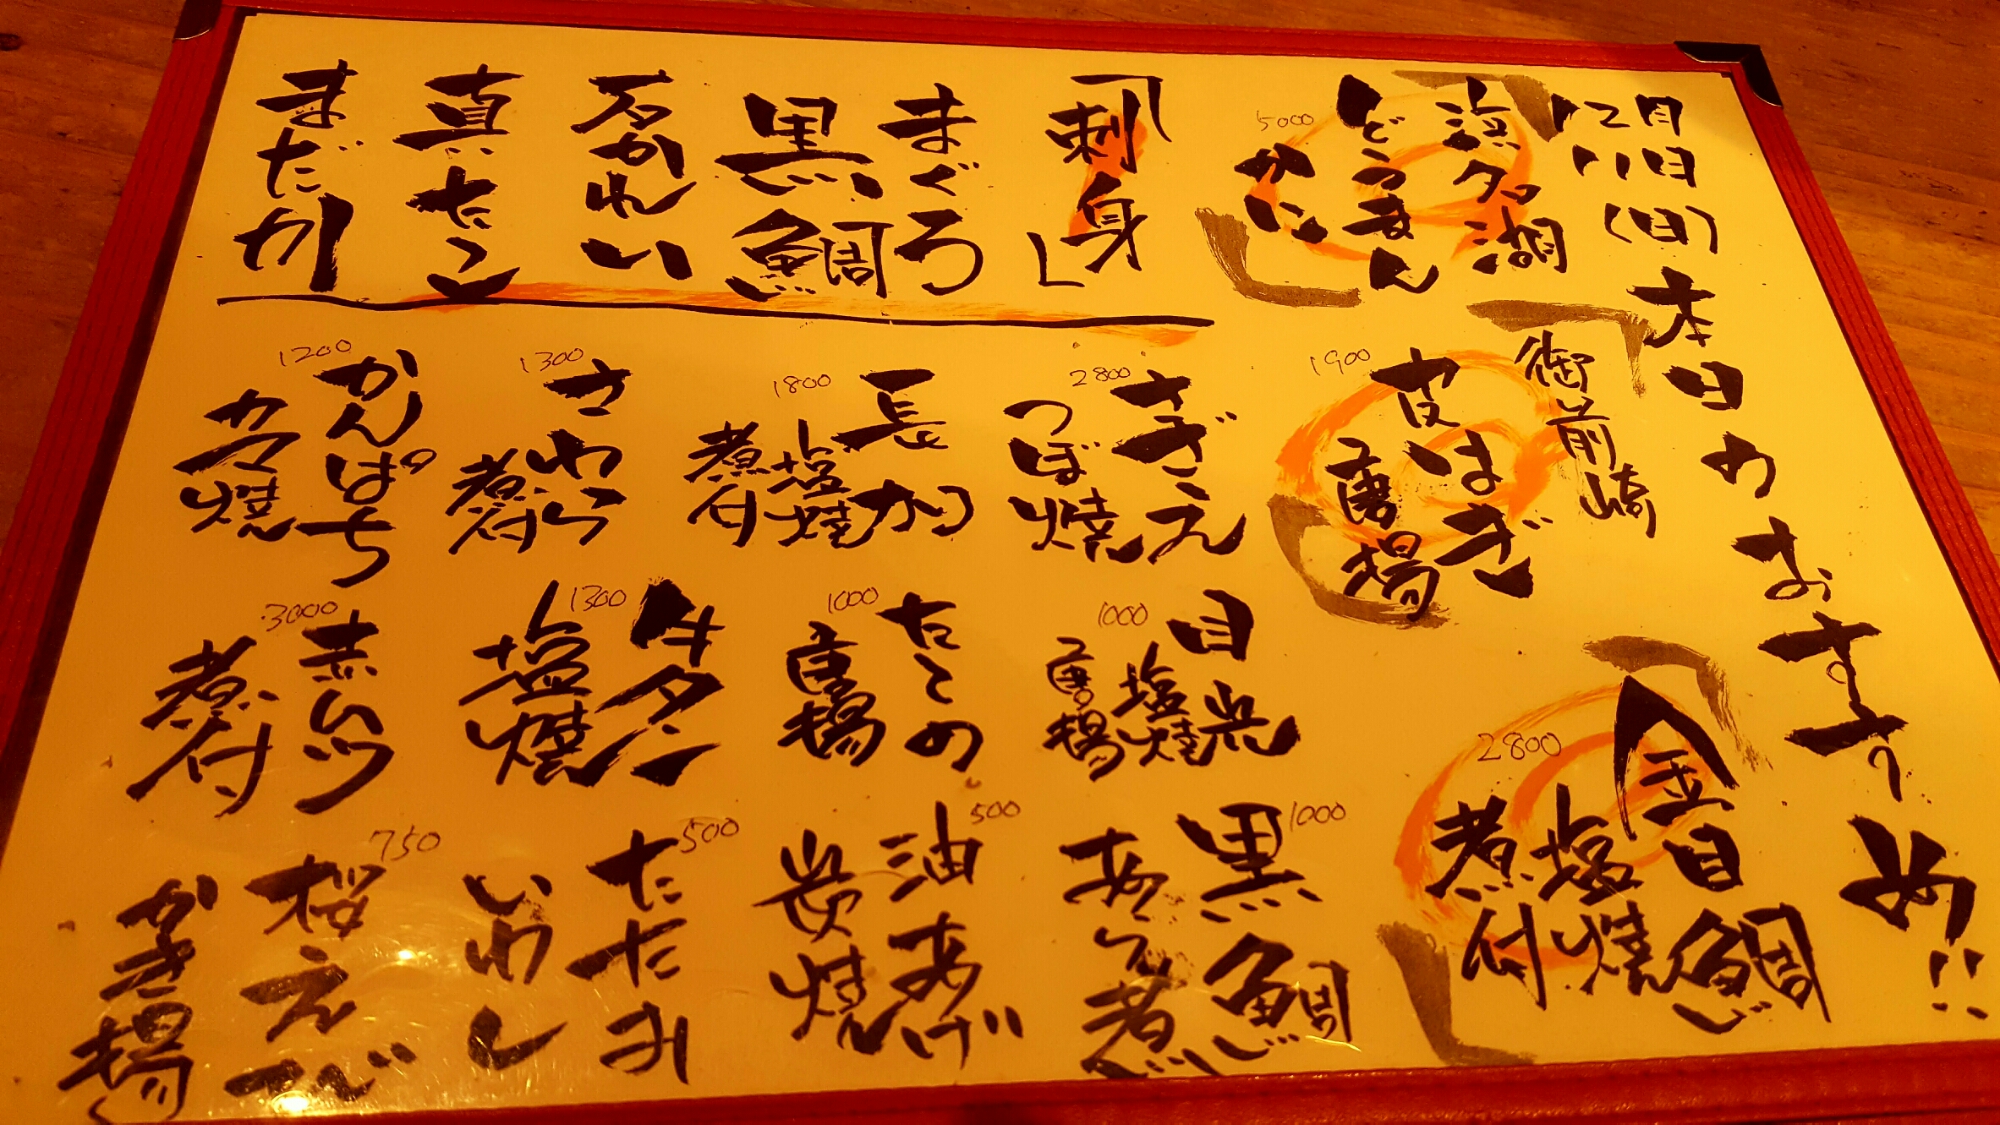 12月11日(日)本日のおすすめ!!
浜名湖
どうまん
かに
5000
御前崎
皮はぎ
唐揚
1900
金目鯛
塩焼
煮付
2800
「刺身」
まぐろ
黒鯛
石かれい
真だこ
まだか
さざえ
つぼ焼
2800
長かつ
塩焼
煮付
1800
さわら
煮付
1300
かんぱち
カマ焼
1200
目光
塩焼
唐揚
1000
たこの
唐揚
1000
牛タン
塩焼
1300
赤ムツ
煮付
3000
黒鯛
あら煮
1000
油あげ
炭焼
500
たたみ
いわし
500
桜えび
かき揚
750